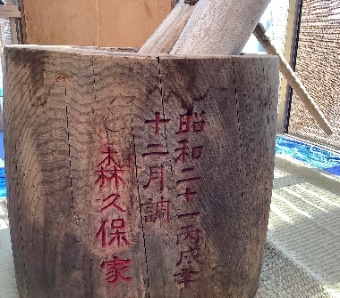 昭和二十一丙戌年
十二月調
森久保家